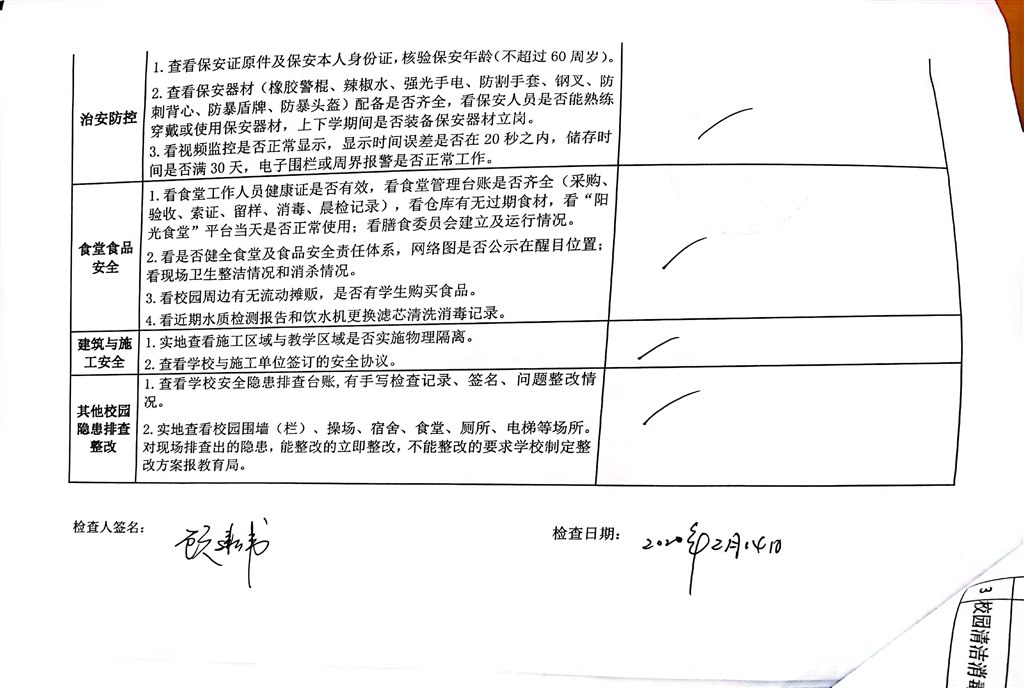 1. 查看保安证原件及保安本人身份证，核验保安年龄（不超过 60 周岁）。
2. 查看保安器材（橡胶警棍、辣椒水、强光手电、防割手套、钢叉、防
刺背心、防暴盾牌、防暴头盔）配备是否齐全，看保安人员是否能熟练
穿戴或使用保安器材，上下学期间是否装备保安器材立岗。
3. 看视频监控是否正常显示，显示时间误差是否在 20 秒之内，储存时
间是否满 30 天，电子围栏或周界报警是否正常工作。
治安防控
1. 看食堂工作人员健康证是否有效，看食堂管理台账是否齐全（采购、
验收、索证、留样、消毒、晨检记录），看仓库有无过期食材，看“阳
光食堂”平台当天是否正常使用；看膳食委员会建立及运行情况。
2. 看是否健全食堂及食品安全责任体系，网络图是否公示在醒目位置；
看现场卫生整洁情况和消杀情况。
3. 看校园周边有无流动摊贩，是否有学生购买食品。
4. 看近期水质检测报告和饮水机更换滤芯清洗消毒记录。
食堂食品
安全
1. 实地查看施工区域与教学区域是否实施物理隔离。
2. 查看学校与施工单位签订的安全协议。
建筑与施
工安全
1. 查看学校安全隐患排查台账，有手写检查记录、签名、问题整改情
况。
2. 实地查看校园围墙（栏）、操场、宿舍、食堂、厕所、电梯等场所。
对现场排查出的隐患，能整改的立即整改，不能整改的要求学校制定整
改方案报教育局。
其他校园
隐患排查
整改
检查人签名：
检查日期： 2020年2月14日
3
校园清洁消毒